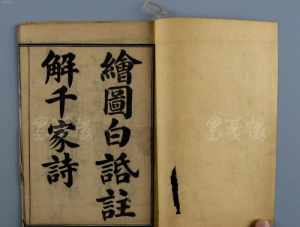 繪圖白話註
解千家詩